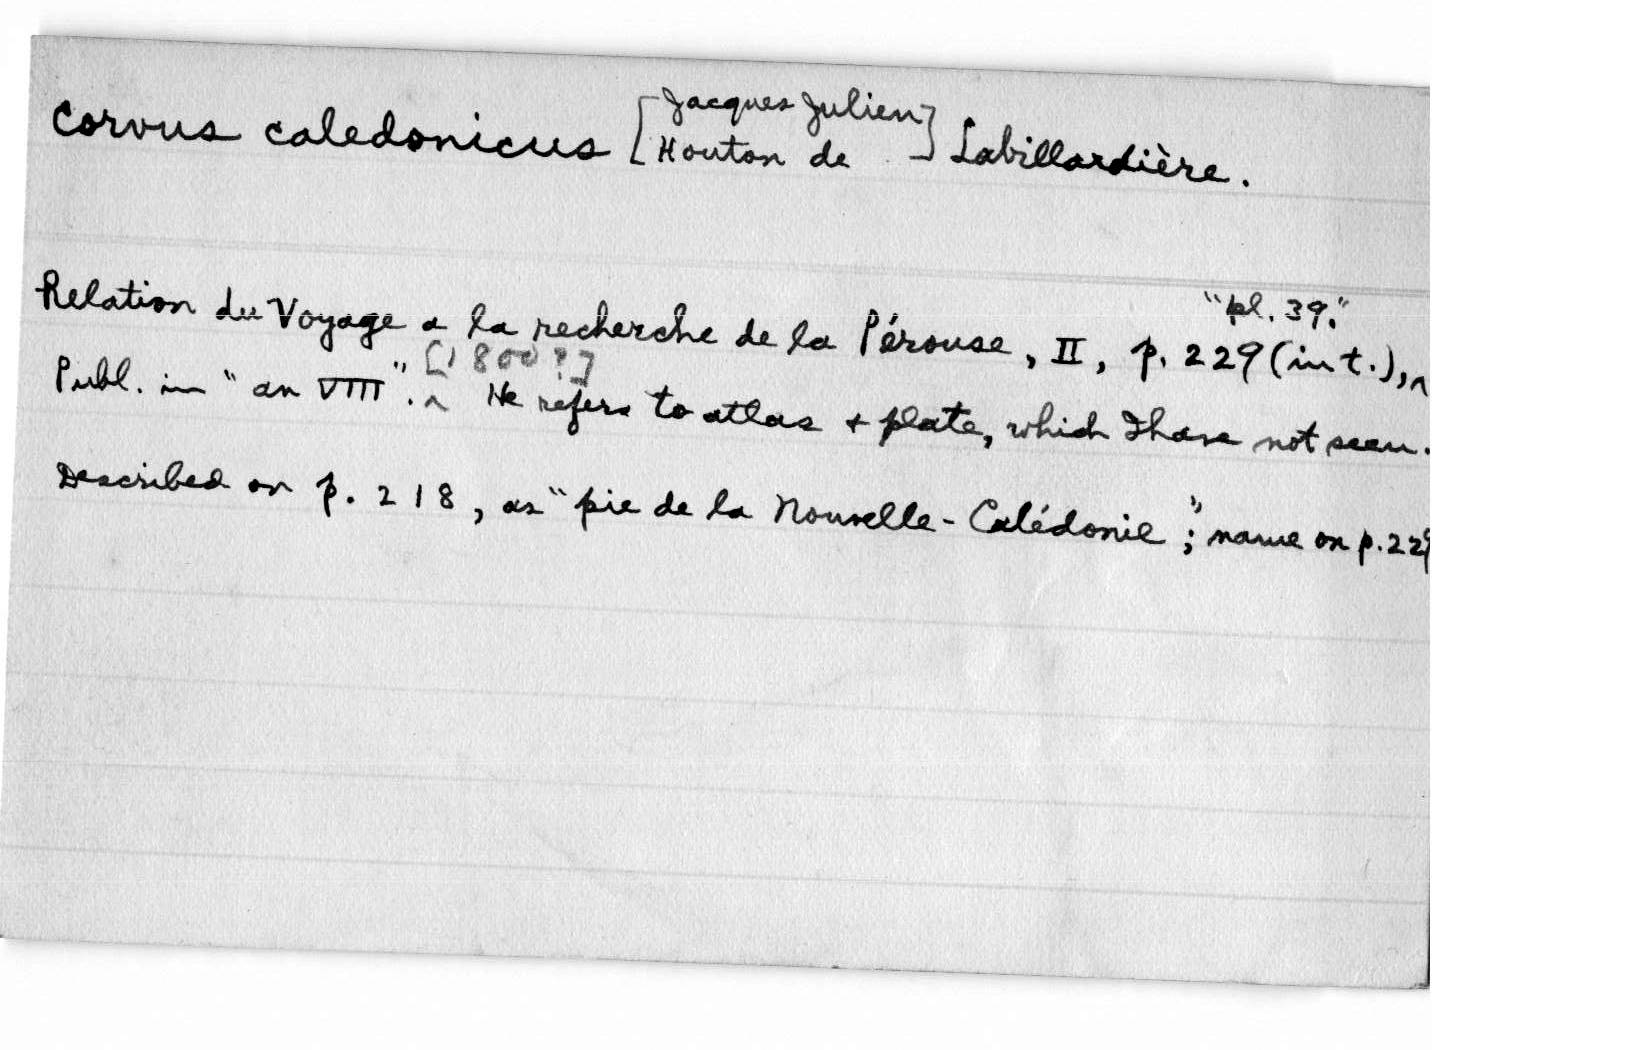 Corvus caledonicus [Jacques Julien Houton de] Labillardière.
Relation du Voyage a la recherche de la Pérouse, II, p. 229 (in t.), ^ "pl. 39."
Publ. in "an VIII". ^ [1800?] He refers to atlas + plate, which I have not seen.
Described on p. 218, as "pie de la Nouvelle-Calédonie"; name on p. 229